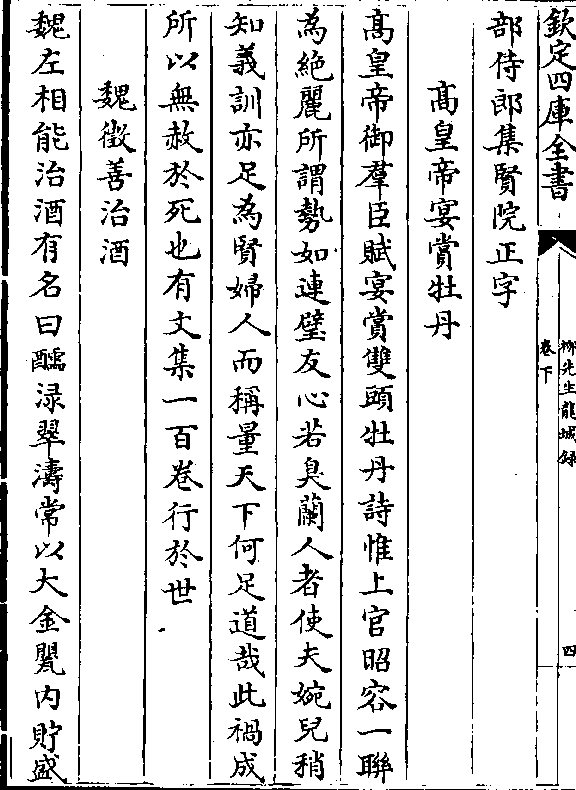 欽定四庫全書
柳先生龍城錄
卷下
四
部侍郎集賢院正字
高皇帝宴賞牡丹
高皇帝御羣臣賦宴賞雙頭牡丹詩惟上官昭容一聯
為絶麗所謂勢如連璧友心若臭蘭人者使夫婉兒稍
知義訓亦足為賢婦人而稱量天下何足道哉此禍成
所以無赦於死也有文集一百卷行於世
魏徵善治酒
魏左相能治酒有名曰醹渌翠濤常以大金罌内貯盛